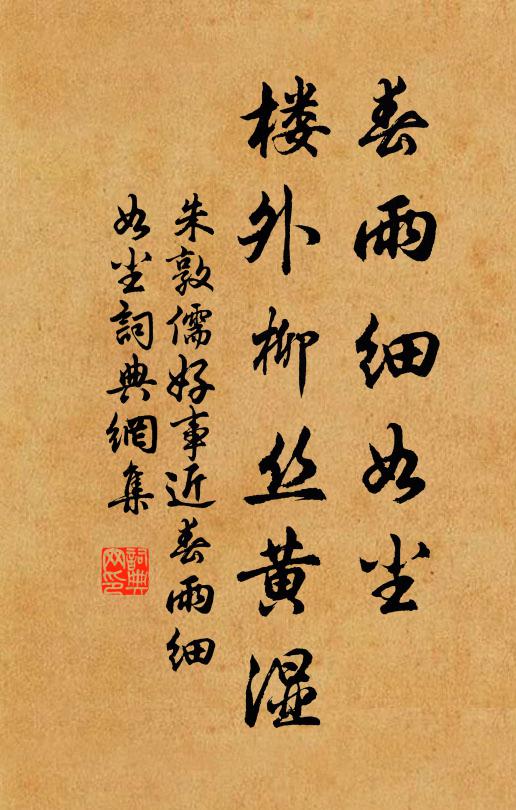 春雨细如尘
楼外柳丝黄湿
朱敦儒好事近春雨细
如尘詞典網集
詞典网印